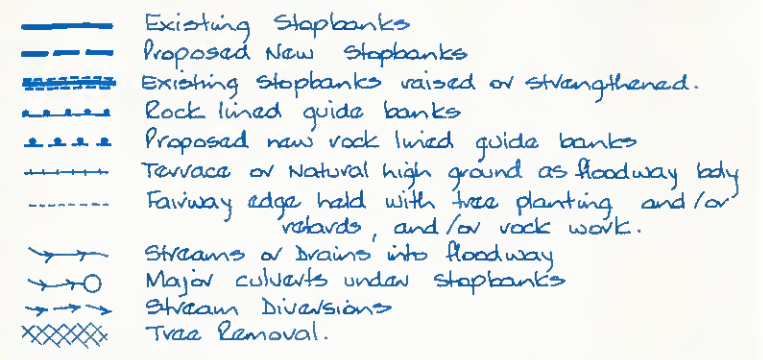 Existing Stopbanks
Proposed New Stopbanks
Existing Stopbanks raised or strengthened.
Rock lined guide banks
Proposed new rock lined guide banks
Terrace or Natural high ground as floodway bdy
Fairway edge held with tree planting and/or
retards, and/or rock work.
Streams or Drains into floodway
Major culverts under stopbanks
Stream Diversions
Tree Removal.